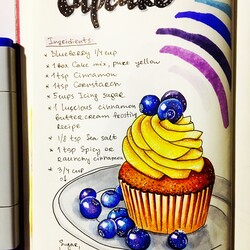 cupcake
Ingredients:
* Blueberry 1/4 cup
* 1 Box Cake mix, pure yellow
* 1 tsp Cinnamon
* 1 tsp Cornstarch
* 5 cups Icing sugar
* 1 Luscious cinnamon
Buttercream frosting
recipe
* 1/8 tsp Sea salt
* 1 tsp Spicy or
Raunchy cinnamon
* 3/4 cup
Sugar,